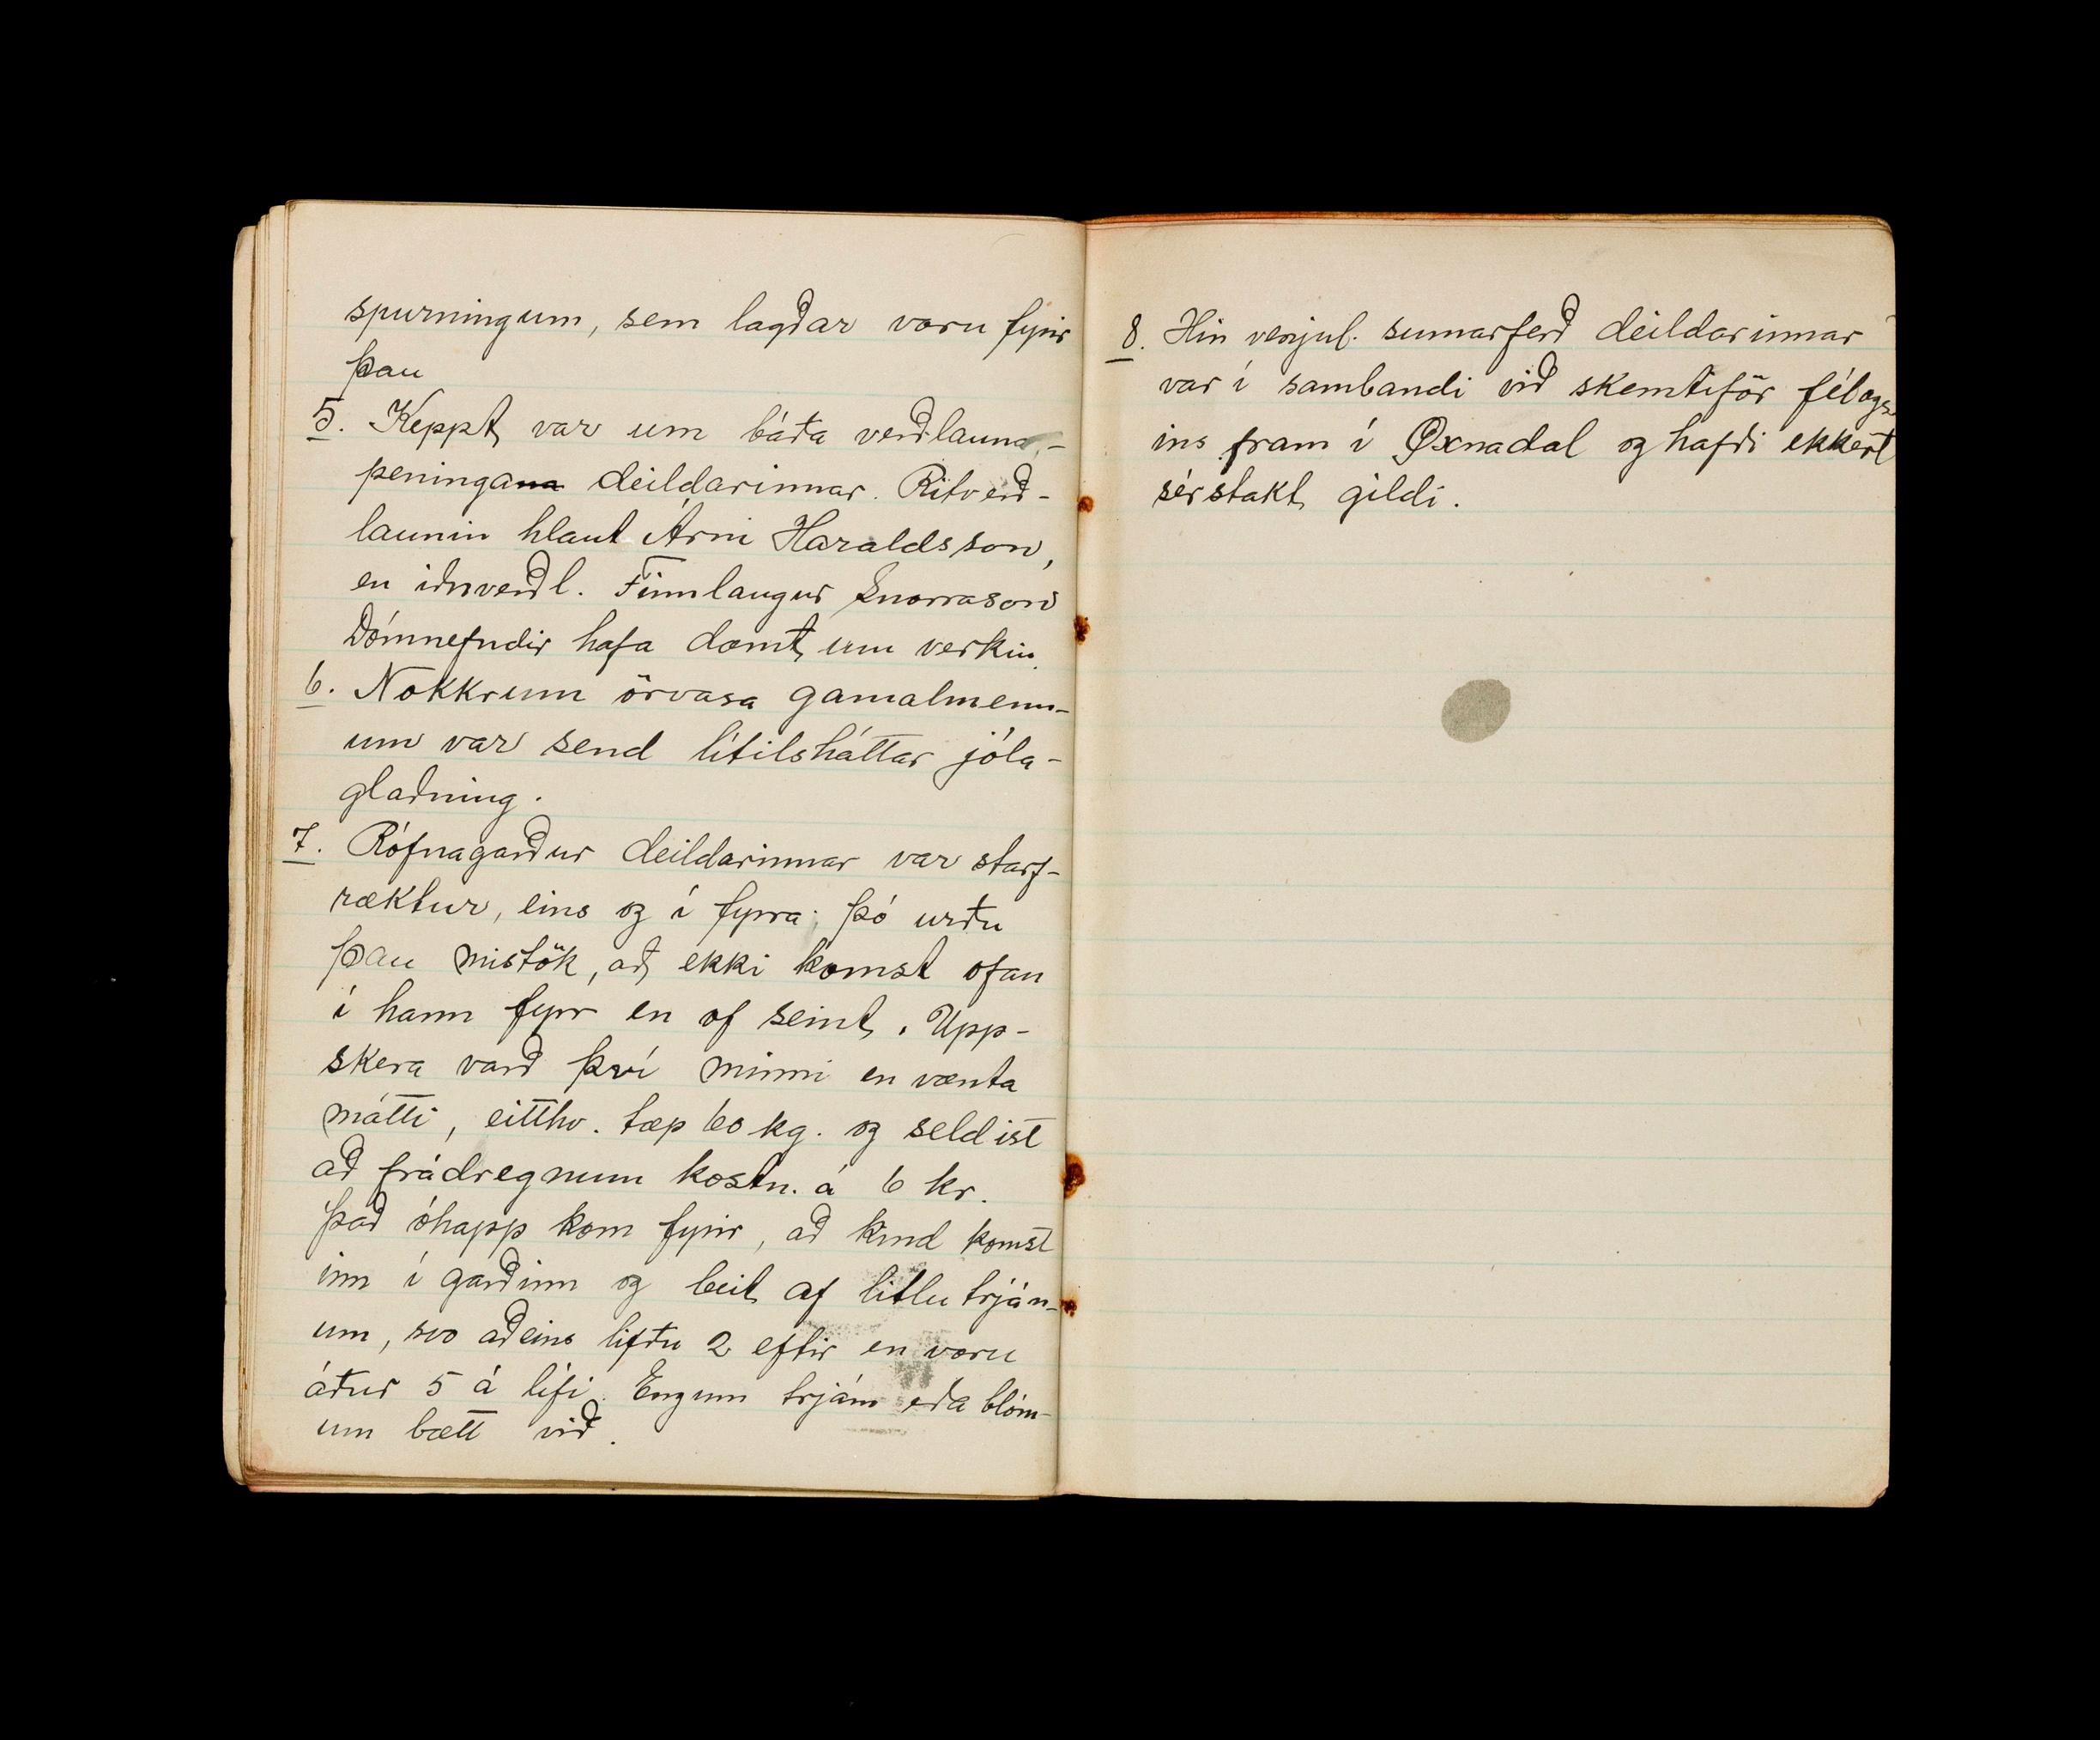 spurningum, sem lagðar voru fyrir
þau
5. Keppt var um báða verðlauna-
peningana deildarinnar. Ritverð-
launin hlaut Árni Haraldsson,
en iðnverðl. Finnlaugur Snorrason
Dómnefndir hafa dæmt um verkin.
6. Nokkrum örvasa gamalmenn-
um var send lítilsháttar jóla-
glaðning.
7. Rófnagarður deildarinnar var starf-
ræktur, eins og í fyrra. þó urðu
þau mistök, að ekki komst ofan
í hann fyr en of seint. Upp-
skera varð því minni en vænta
mátti, eitthv. tæp 60 kg. og seldist
að frádregnum kostn. á 6 kr.
það óhapp kom fyrir, að kind komst
inn í garðinn og beit af litlu trján-
um, svo aðeins lifðu 2 eftir en voru
áður 5 á lífi. Engum trjám eða blóm-
um bætt við.
8. Hin venjul. sumarferð deildarinnar
var í sambandi við skemtiför félags-
ins fram í Öxnadal og hafði ekkert
sérstakt gildi.